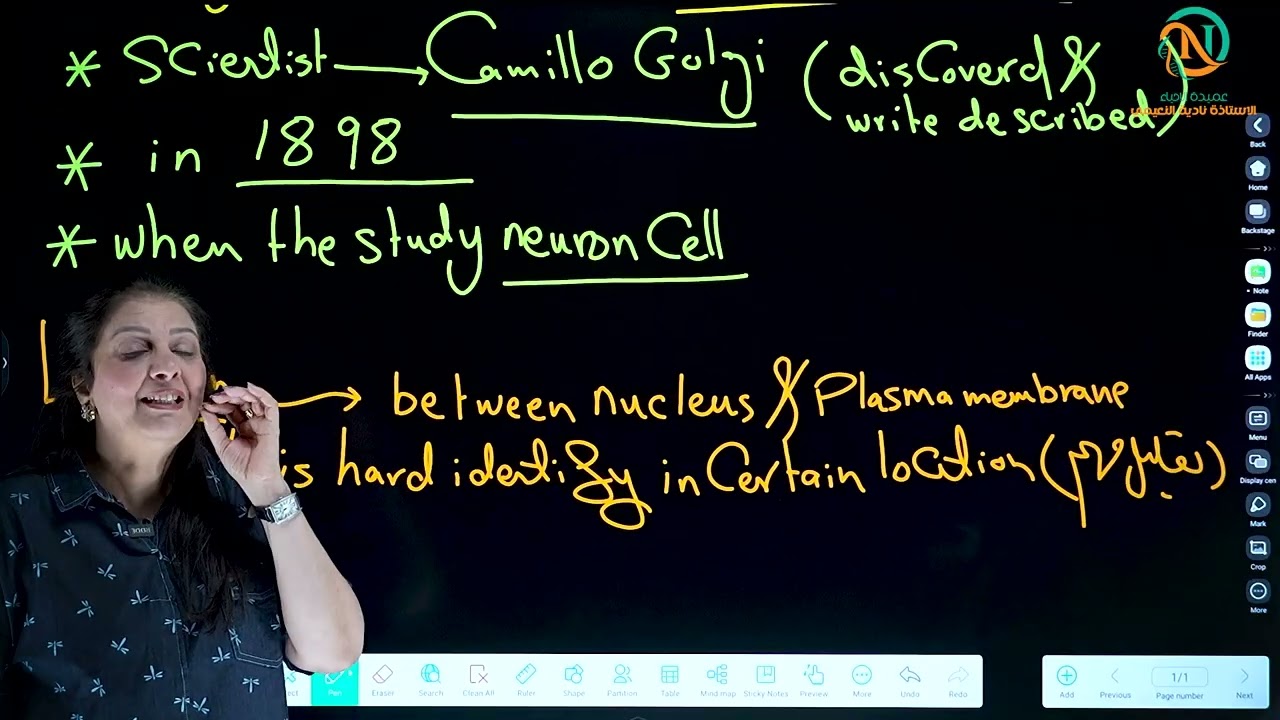 * Scientist → Camillo Golgi (disCoverd &
write described)
* in 1898
* when the study neuron Cell
→ between nucleus & Plasma membrane
is hard identify in Certain location (
عميدة الاحياء
الاستاذة نادية النعيمي
N
Back
Home
Backstage
Note
Finder
All Apps
Menu
Display cen
Mark
Crop
More
Pen
Eraser
Search
Clean All
Ruler
Shape
Partition
Table
Mind map
Sticky Notes
Preview
More
Undo
Redo
Add
Previous
1/1
Page number
Next